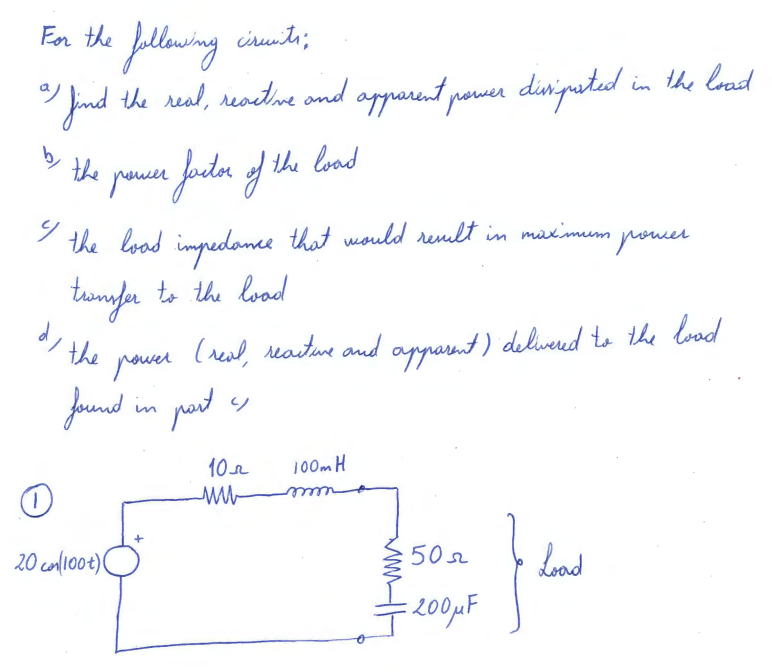 For the following circuits;
a) find the real, reactive and apparent power dissipated in the load
b) the power factor of the load
c) the load impedance that would result in maximum power
transfer to the load
d) the power (real, reactive and apparent) delivered to the load
found in part c)
10Ω 100mH
①
+
20 cos(100t)
50Ω
Load
200μF